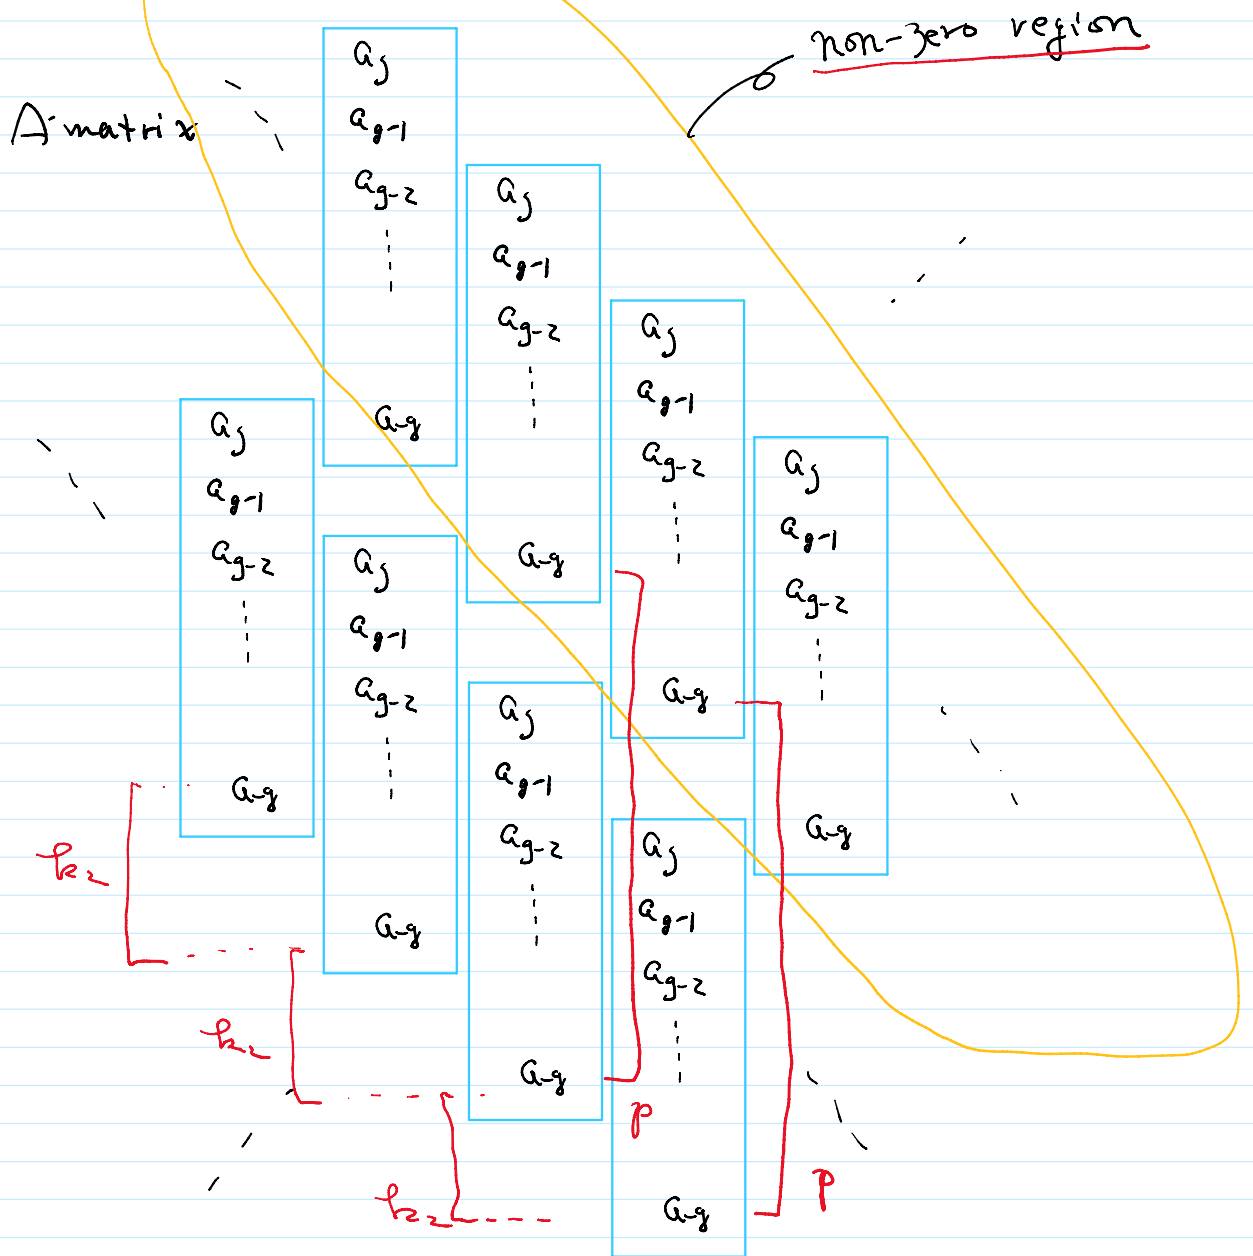 non-zero region
A-matrix
a_g
a_g-1
a_g-2
a_-g
a_g
a_g-1
a_g-2
a_-g
a_g
a_g-1
a_g-2
a_-g
a_g
a_g-1
a_g-2
a_-g
a_g
a_g-1
a_g-2
a_-g
a_g
a_g-1
a_g-2
a_-g
a_g
a_g-1
a_g-2
a_-g
a_g
a_g-1
a_g-2
a_-g
k_2
k_2
k_2
p
p